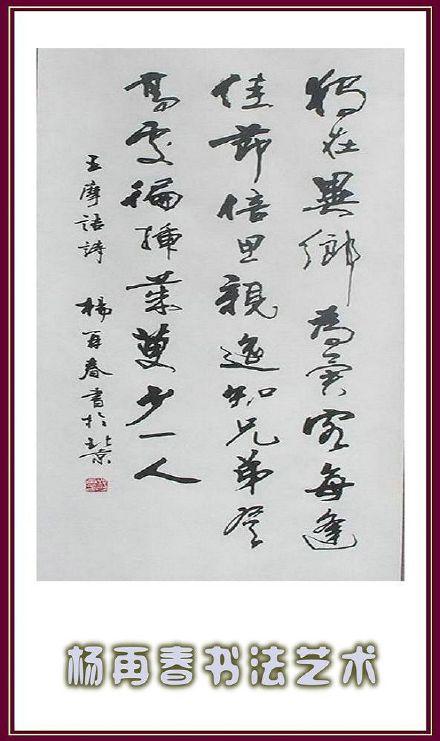 獨在異鄉為異客每逢
佳節倍思親遙知兄弟登
高處徧插茱萸少一人
王摩詰詩 楊再春書於北京
杨再春书法艺术